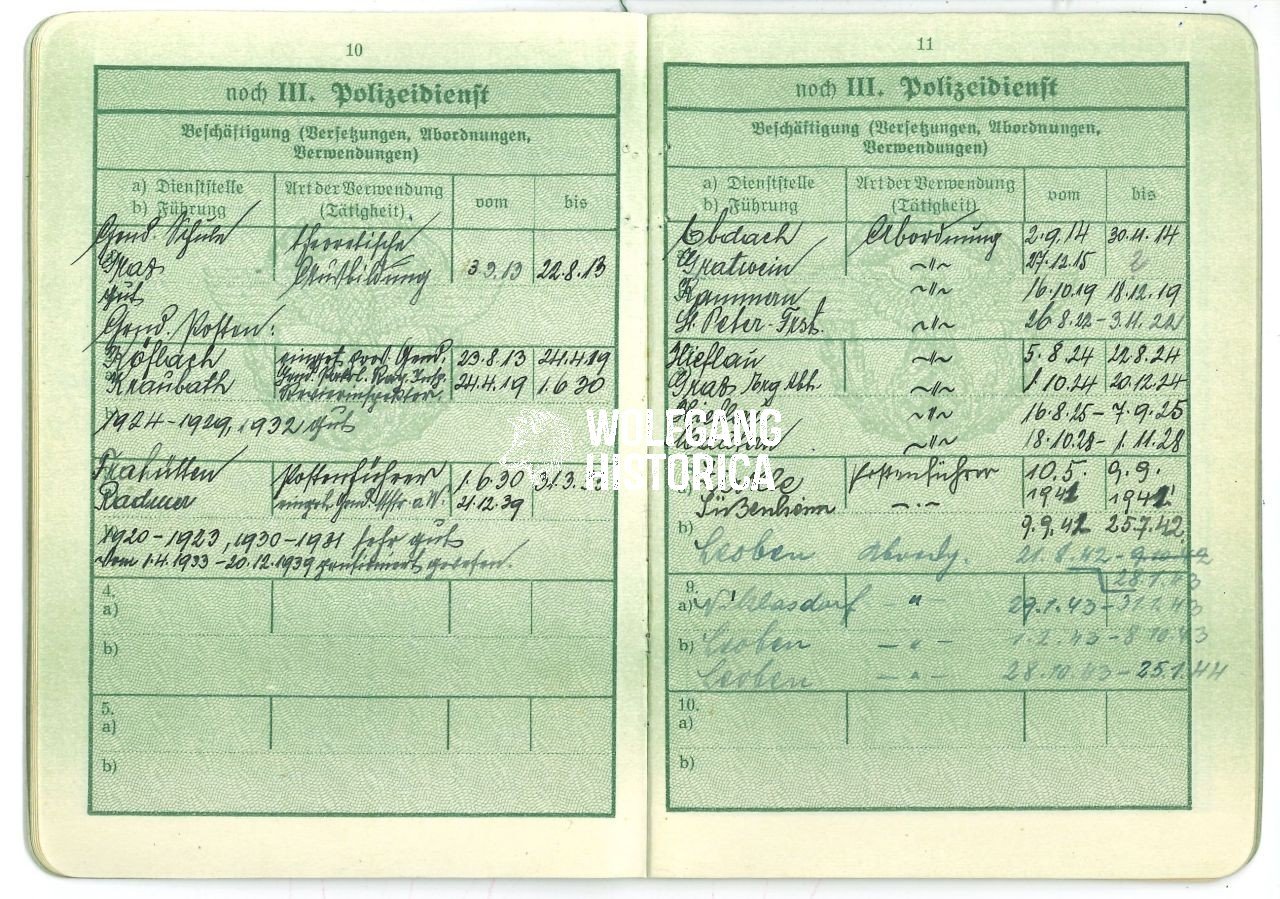 10
noch III. Polizeidienst
Beschäftigung (Versetzungen, Abordnungen,
Verwendungen)
a) Dienststelle
b) Führung
Art der Verwendung
(Tätigkeit)
vom
bis
Gend. Schule theoretische
Graz Ausbildung 3.3.13 22.8.13
gut
Gend. Posten:
Köflach prov. Gend. 23.8.13 24.4.19
Kraubath 24.4.19 1.6.30
Revierinspektor
1924-1929, 1932 gut
Trahütten Postenführer 1.6.30 31.3.
Radmer 21.12.39
1920-1923, 1930-1931 sehr gut
Vom 1.4.1933-20.12.1939 pensioniert gewesen.
4.
a)
b)
5.
a)
b)
11
noch III. Polizeidienst
Beschäftigung (Versetzungen, Abordnungen,
Verwendungen)
a) Dienststelle
b) Führung
Art der Verwendung
(Tätigkeit)
vom
bis
Obdach Abordnung 2.9.14 30.11.14
Gratwein -"- 27.12.15 ?
Kammern -"- 16.10.19 18.12.19
St. Peter-Frst. -"- 26.8.22-3.11.22
Hieflau -"- 5.8.24 22.8.24
Graz -"- 1.10.24 20.12.24
-"- 16.8.25-7.9.25
-"- 18.10.28-1.11.28
Postenführer 10.5. 9.9.
Süßenheim -"- 1941 1941
b) 9.9.41 25.7.42
Leoben Abordg. 21.8.42-9.10.42
28.1.43
9.
a) Niklasdorf -"- 29.1.43-31.1.43
b) Leoben -"- 1.2.43-8.10.43
Leoben -"- 28.10.43-25.1.44
10.
a)
b)
WOLFGANG
HISTORICA